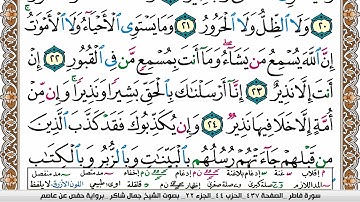 ٢٠ وَلَا الظِّلُّ وَلَا الْحَرُورُ ٢١ وَمَا يَسْتَوِي الْأَحْيَاءُ وَلَا الْأَمْوَاتُ
إِنَّ اللَّهَ يُسْمِعُ مَن يَشَاءُ وَمَا أَنتَ بِمُسْمِعٍ مَّن فِي الْقُبُورِ ٢٢ إِنْ
أَنتَ إِلَّا نَذِيرٌ ٢٣ إِنَّا أَرْسَلْنَاكَ بِالْحَقِّ بَشِيرًا وَنَذِيرًا وَإِن مِّنْ
أُمَّةٍ إِلَّا خَلَا فِيهَا نَذِيرٌ ٢٤ وَإِن يُكَذِّبُوكَ فَقَدْ كَذَّبَ الَّذِينَ
مِن قَبْلِهِمْ جَاءَتْهُمْ رُسُلُهُم بِالْبَيِّنَاتِ وَبِالزُّبُرِ وَبِالْكِتَابِ
سورة فاطر الصفحة ٤٣٧ الحزب ٤٤ الجزء ٢٢ بصوت الشيخ جمال شاكر برواية حفص عن عاصم